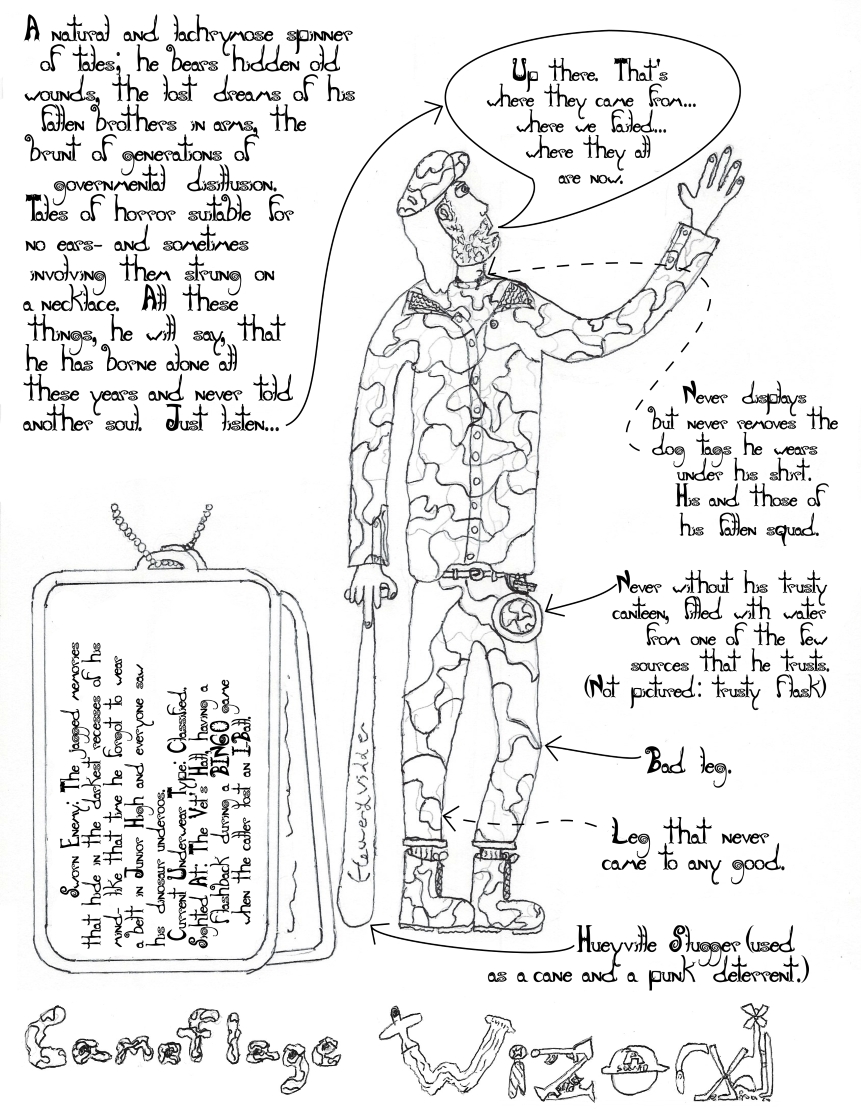 A natural and lachrymose spinner
of tales; he bears hidden old
wounds, the lost dreams of his
fallen brothers in arms, the
brunt of generations of
governmental disillusion.
Tales of horror suitable for
no ears- and sometimes
involving them strung on
a necklace. All these
things, he will say, that
he has borne alone all
these years and never told
another soul. Just listen...
Up there. That's
where they came from...
where we failed...
where they all
are now.
Never displays
but never removes the
dog tags he wears
under his shirt.
His and those of
his fallen squad.
Never without his trusty
canteen, filled with water
from one of the few
sources that he trusts.
(Not pictured: trusty flask)
Bad leg.
Leg that never
came to any good.
Hueyville Slugger (used
as a cane and a punk deterrent.)
Sworn Enemy: The jagged memories
that hide in the darkest recesses of his
mind- like that time he forgot to wear
a belt in Junior High and everyone saw
his dinosaur underoos.
Current Underwear Type: Classified.
Sighted At: The Vet's Hall, having a
flashback during a BINGO game
when the caller lost an I-Ball.
Camoflage Wizard